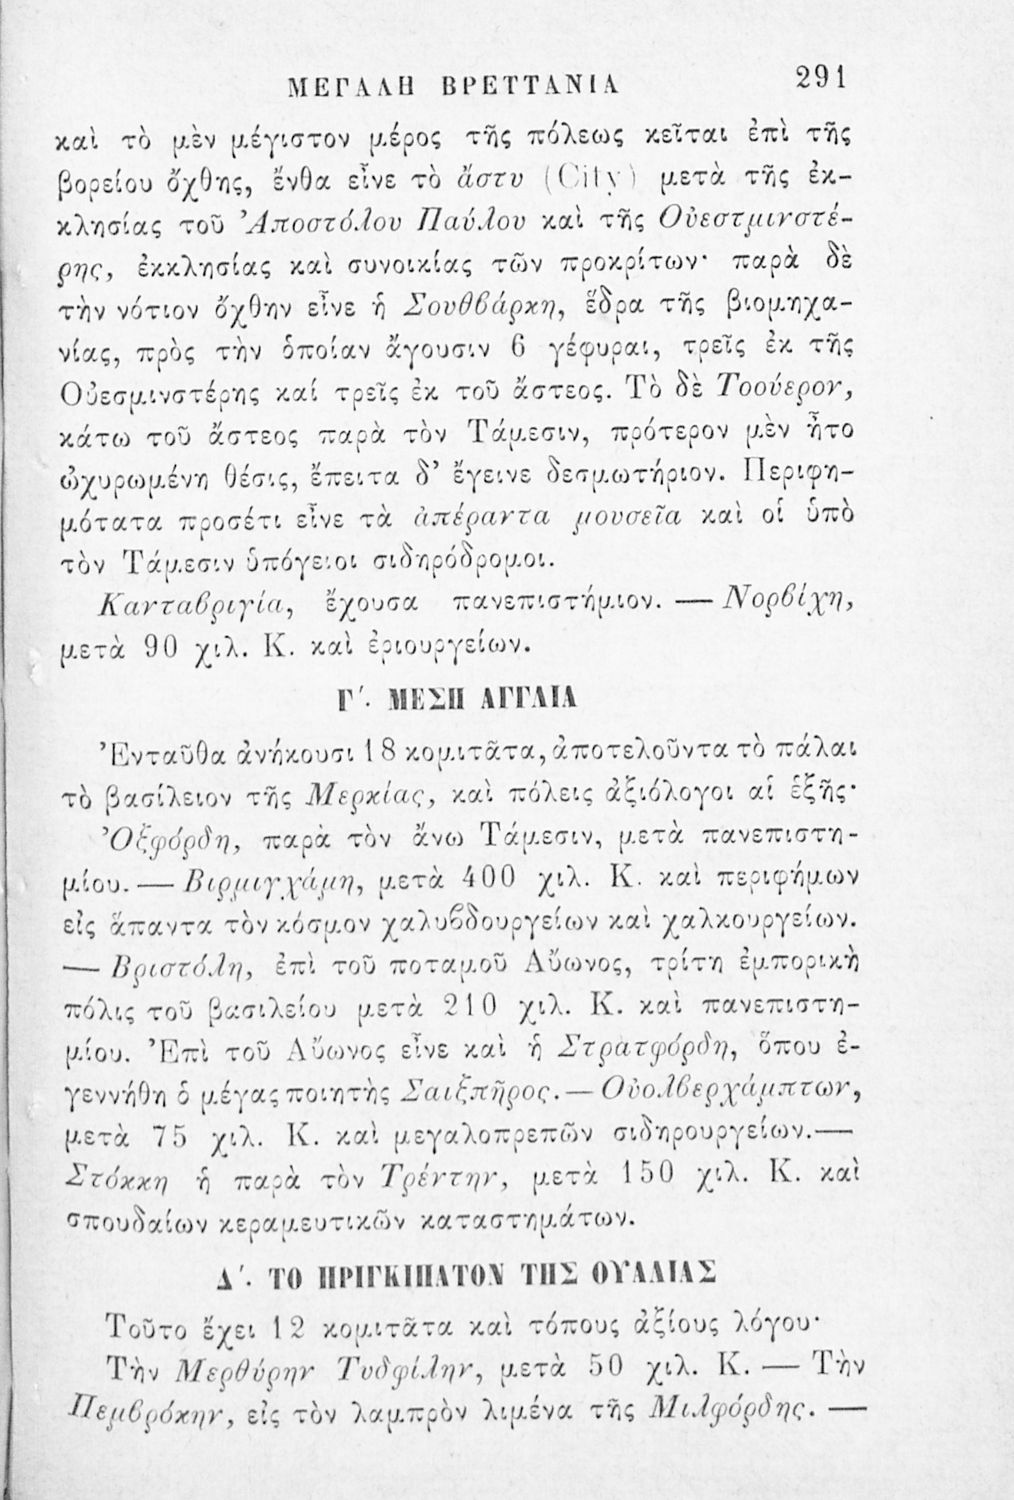 ΜΕΓΑΛΗ ΒΡΕΤΤΑΝΙΑ 291
καὶ τὸ μὲν μέγιστον μέρος τῆς πόλεως κεῖται ἐπὶ τῆς
βορείου ὄχθης, ἔνθα εἶνε τὸ ἄστυ (City) μετὰ τῆς ἐκ-
κλησίας τοῦ Ἀποστόλου Παύλου καὶ τῆς Οὐεστμινστέ-
ρης, ἐκκλησίας καὶ συνοικίας τῶν προκρίτων· παρὰ δὲ
τὴν νότιον ὄχθην εἶνε ἡ Σουθβάρκη, ἕδρα τῆς βιομηχα-
νίας, πρὸς τὴν ὁποίαν ἄγουσιν 6 γέφυραι, τρεῖς ἐκ τῆς
Οὐεσμινστέρης καί τρεῖς ἐκ τοῦ ἄστεος. Τὸ δὲ Τοούερον,
κάτω τοῦ ἄστεος παρὰ τὸν Τάμεσιν, πρότερον μὲν ἦτο
ὠχυρωμένη θέσις, ἔπειτα δ’ ἔγεινε δεσμωτήριον. Περιφη-
μότατα προσέτι εἶνε τὰ ἀπέραντα μουσεῖα καὶ οἱ ὑπὸ
τὸν Τάμεσιν ὑπόγειοι σιδηρόδρομοι.
Κανταβριγία, ἔχουσα πανεπιστήμιον. — Νορβίχη,
μετὰ 90 χιλ. Κ. καὶ ἐριουργείων.
Γ΄. ΜΕΣΗ ΑΓΓΛΙΑ
Ἐνταῦθα ἀνήκουσι 18 κομιτᾶτα, ἀποτελοῦντα τὸ πάλαι
τὸ βασίλειον τῆς Μερκίας, καὶ πόλεις ἀξιόλογοι αἱ ἑξῆς·
Ὀξφόρδη, παρὰ τὸν ἄνω Τάμεσιν, μετὰ πανεπιστη-
μίου. — Βιρμιγχάμη, μετὰ 400 χιλ. Κ. καὶ περιφήμων
εἰς ἅπαντα τὸν κόσμον χαλυβδουργείων καὶ χαλκουργείων.
— Βριστόλη, ἐπὶ τοῦ ποταμοῦ Αὔωνος, τρίτη ἐμπορικὴ
πόλις τοῦ βασιλείου μετὰ 210 χιλ. Κ. καὶ πανεπιστη-
μίου. Ἐπὶ τοῦ Αὔωνος εἶνε καὶ ἡ Στρατφόρδη, ὅπου ἐ-
γεννήθη ὁ μέγας ποιητὴς Σαιξπῆρος. — Οὐολβερχάμπτων,
μετὰ 75 χιλ. Κ. καὶ μεγαλοπρεπῶν σιδηρουργείων. —
Στόκκη ἡ παρὰ τὸν Τρέντην, μετὰ 150 χιλ. Κ. καὶ
σπουδαίων κεραμευτικῶν καταστημάτων.
Δ΄. ΤΟ ΠΡΙΓΚΙΠΑΤΟΝ ΤΗΣ ΟΥΑΛΙΑΣ
Τοῦτο ἔχει 12 κομιτᾶτα καὶ τόπους ἀξίους λόγου·
Τὴν Μερθύρην Τυδφίλην, μετὰ 50 χιλ. Κ. — Τὴν
Πεμβρόκην, εἰς τὸν λαμπρὸν λιμένα τῆς Μιλφόρδης. —